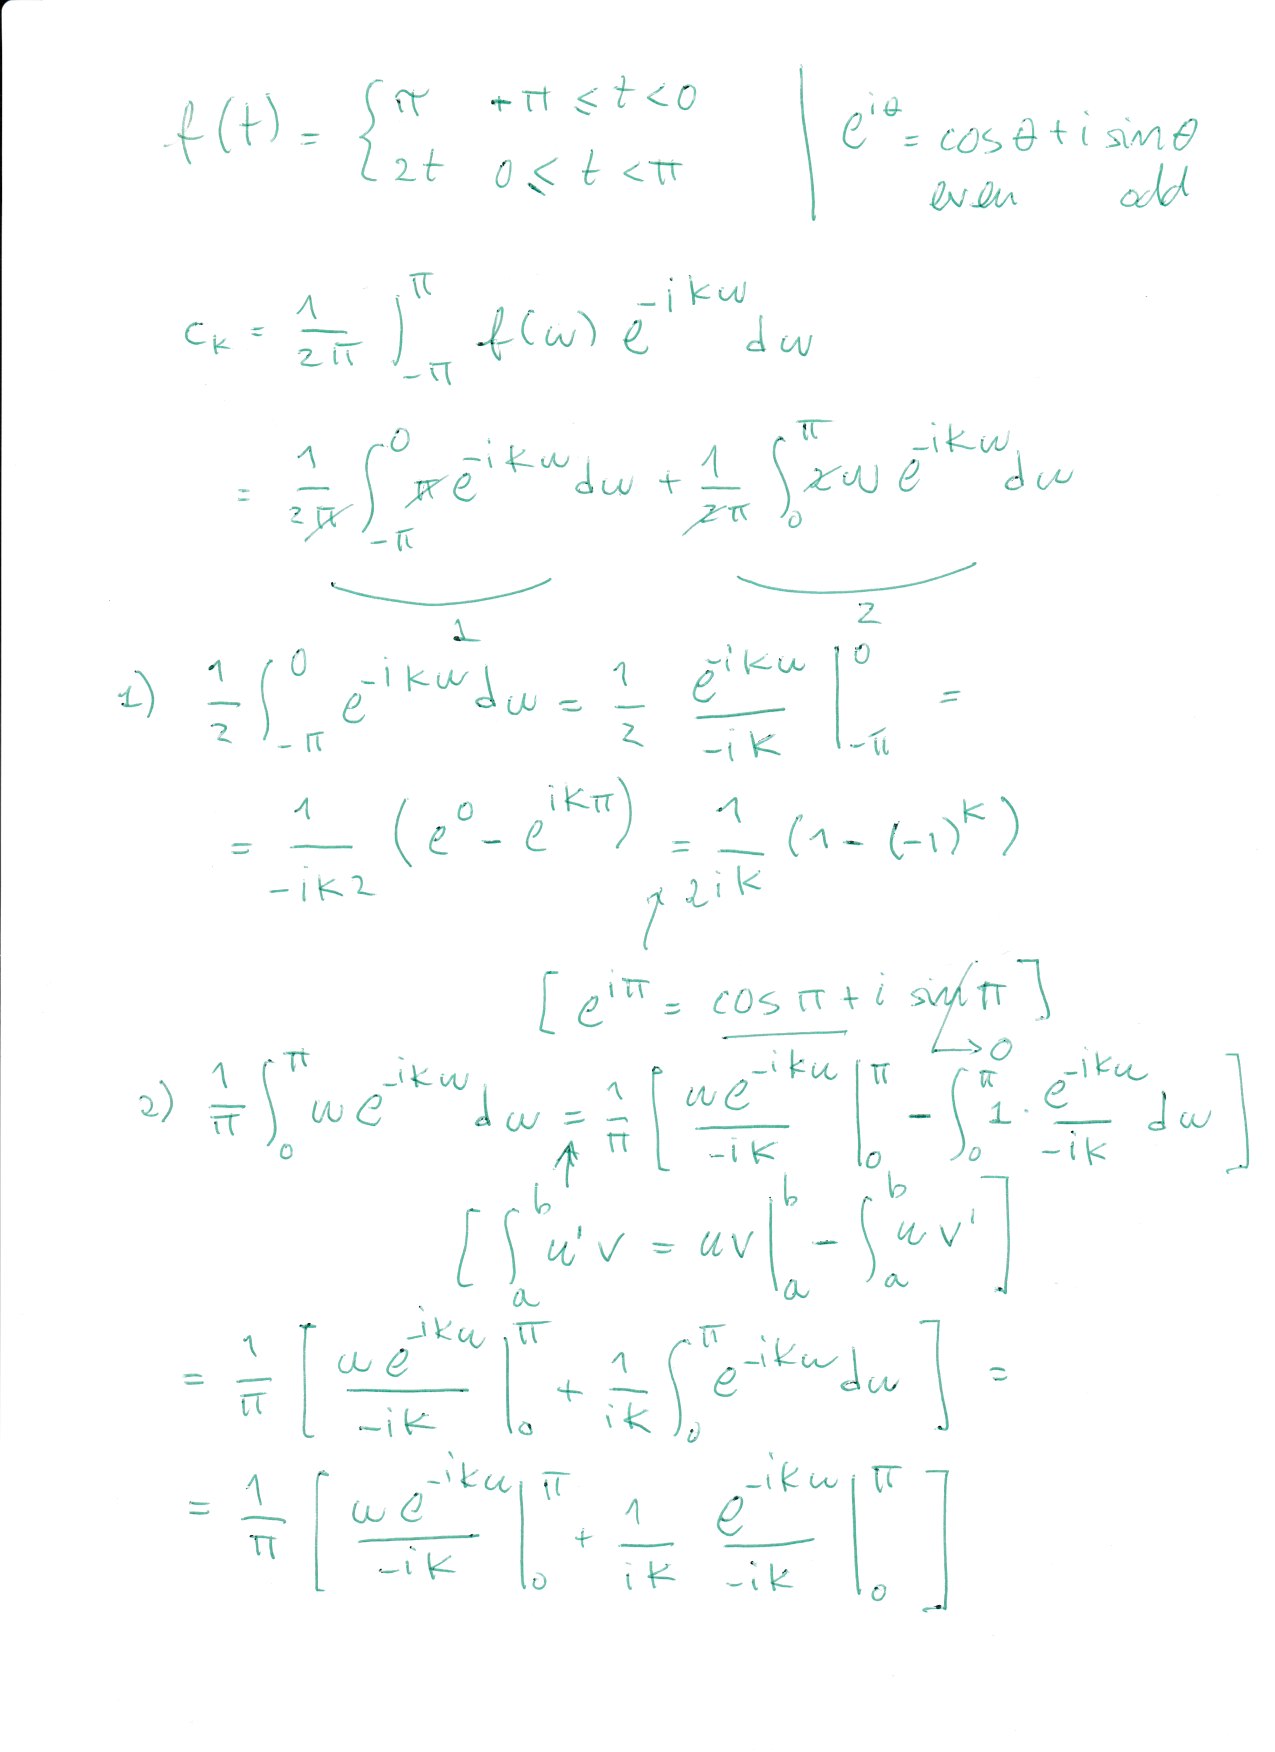 f(t) = { π   +π ≤ t < 0
2t   0 ≤ t < π
e^{iθ} = cos θ + i sin θ
even   odd
c_k = 1/2π ∫_{-π}^{π} f(ω) e^{-ikω} dω
= 1/2π ∫_{-π}^{0} π e^{-ikω} dω + 1/2π ∫_{0}^{π} 2ω e^{-ikω} dω
1   2
1) 1/2 ∫_{-π}^{0} e^{-ikω} dω = 1/2 e^{-ikω}/-ik |_{-π}^{0} =
= 1/-ik2 (e^0 - e^{ikπ}) = 1/2ik (1 - (-1)^k)
[e^{iπ} = cos π + i sin π]
→0
2) 1/π ∫_{0}^{π} ω e^{-ikω} dω = 1/π [ω e^{-ikω}/-ik |_{0}^{π} - ∫_{0}^{π} 1 · e^{-ikω}/-ik dω]
[∫_{a}^{b} u'v = uv |_{a}^{b} - ∫_{a}^{b} u v']
= 1/π [ω e^{-ikω}/-ik |_{0}^{π} + 1/ik ∫_{0}^{π} e^{-ikω} dω] =
= 1/π [ω e^{-ikω}/-ik |_{0}^{π} + 1/ik e^{-ikω}/-ik |_{0}^{π}]